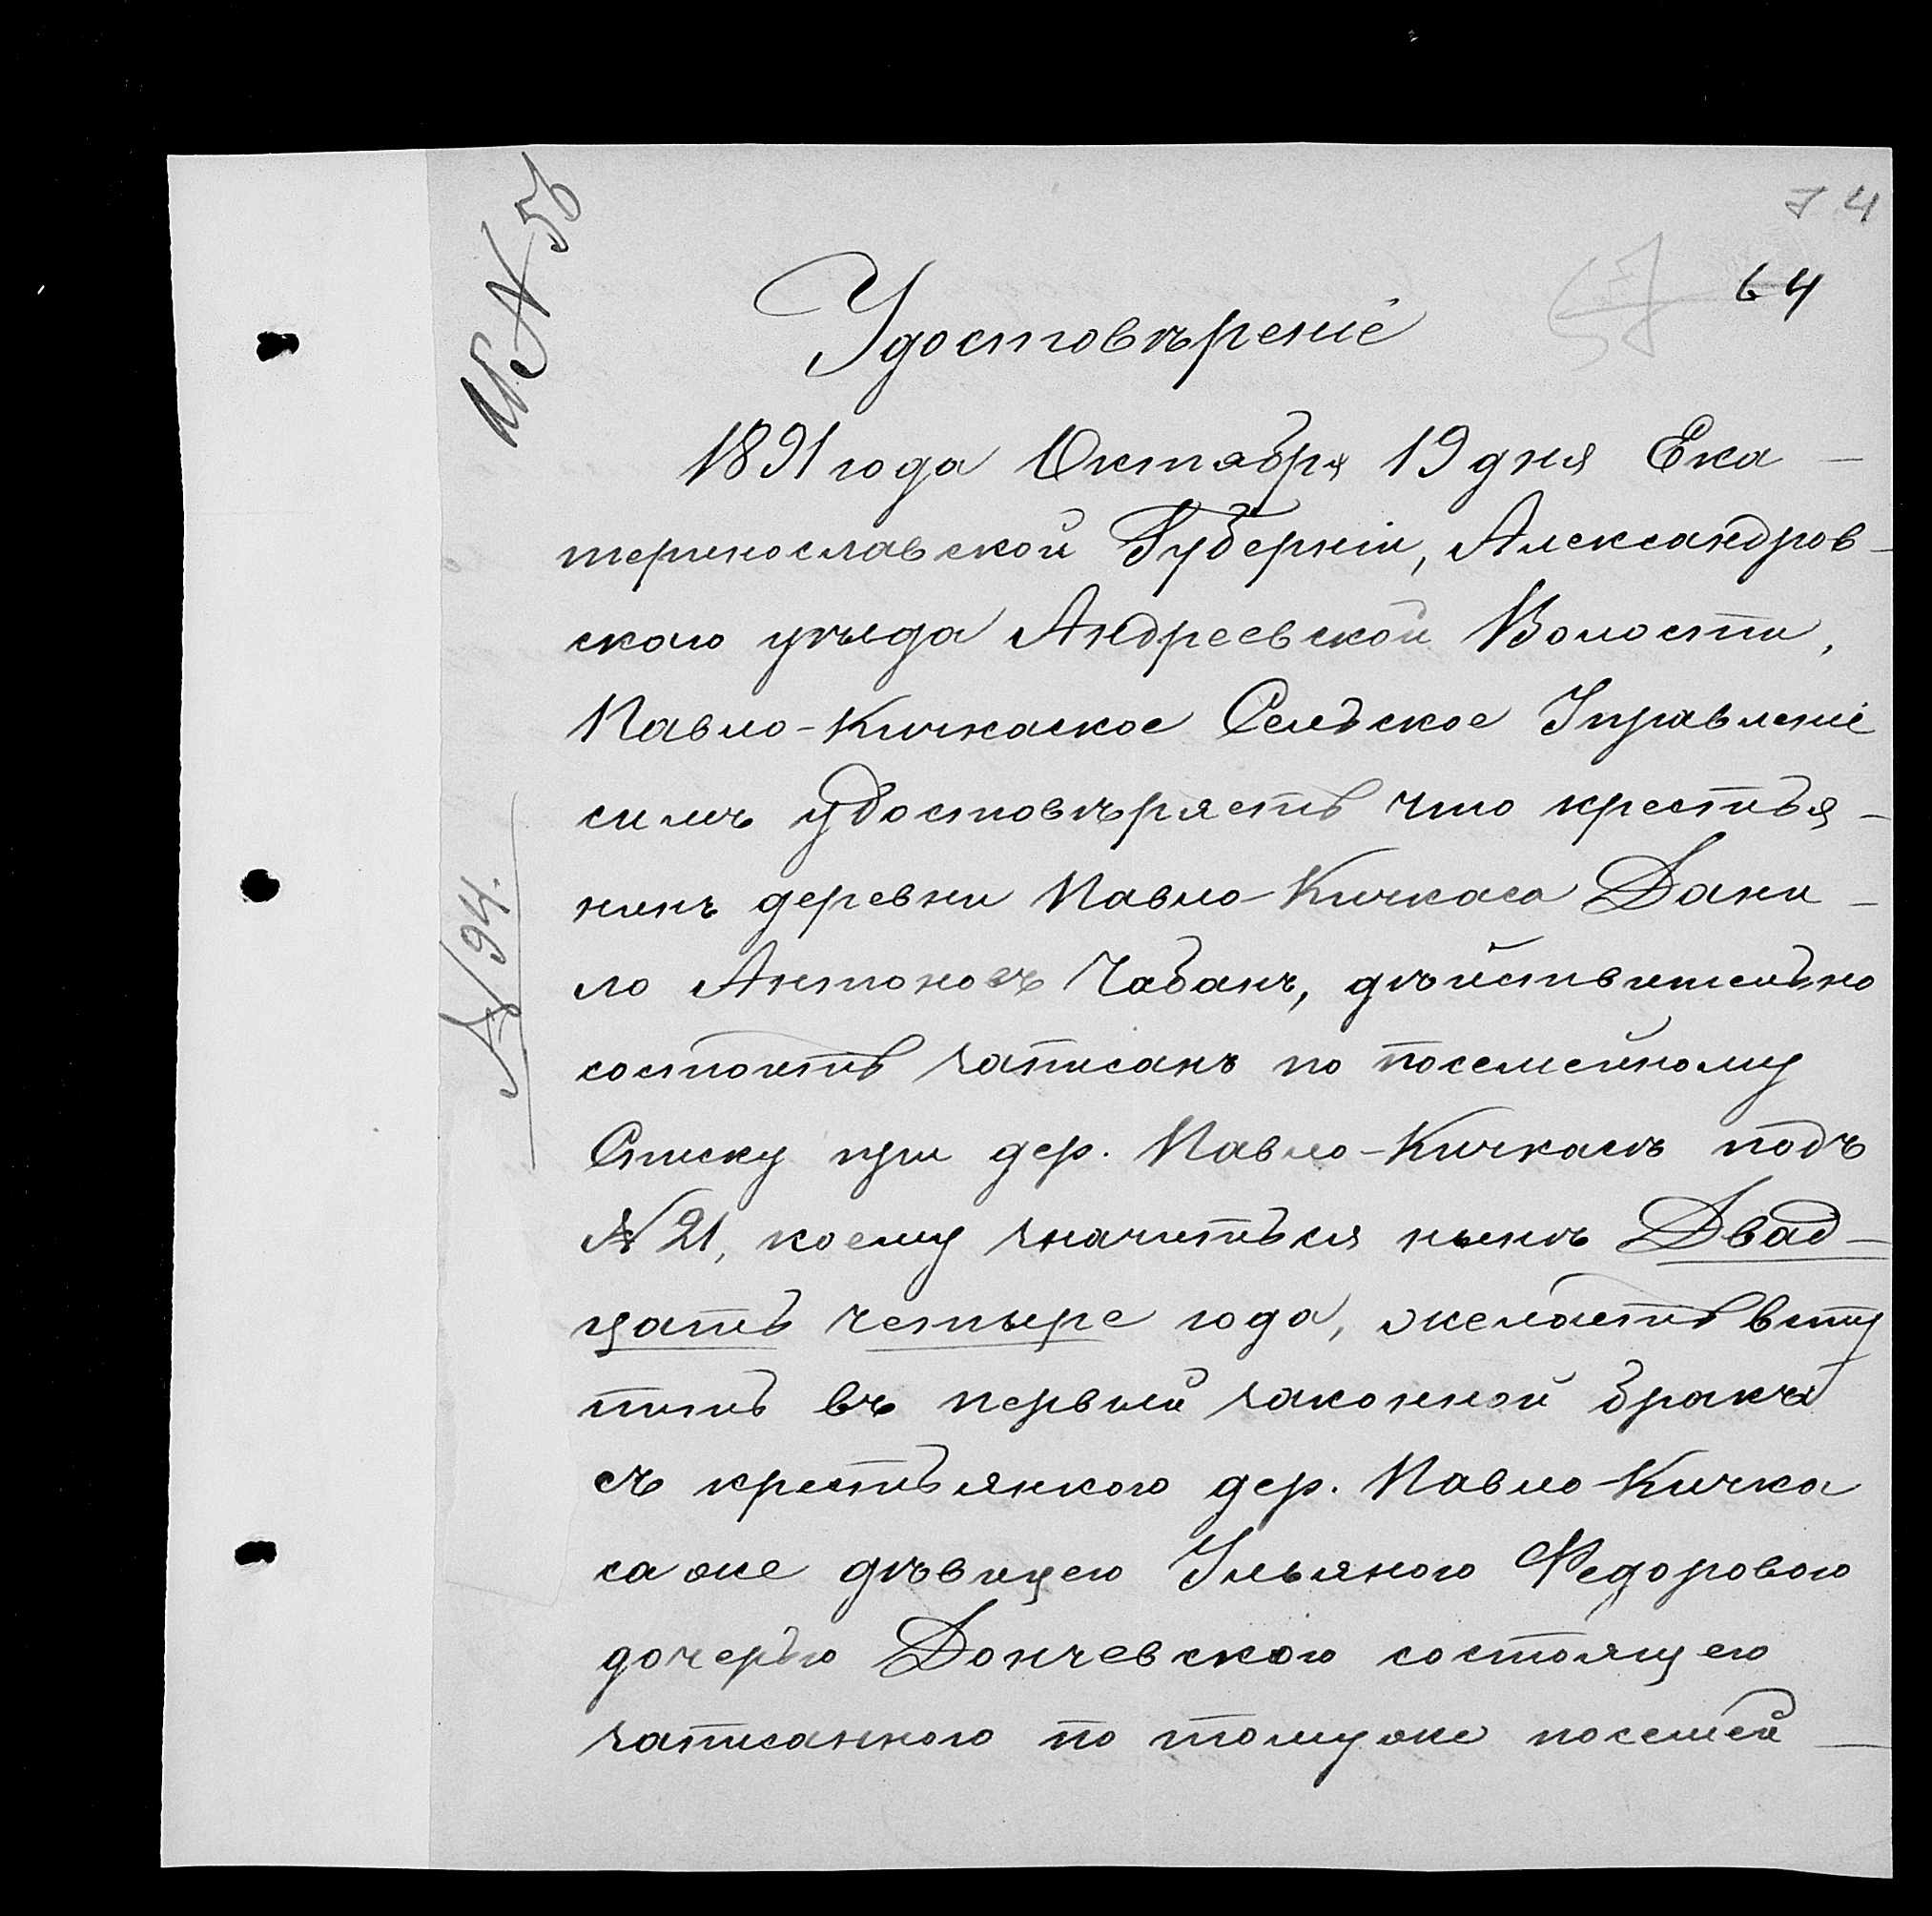 74
64
57
№ 56
Удостовѣреніе
1891 года Октября 19 дня Ека-
теринославской Губерніи, Александров-
скаго уѣзда Андреевской Волости,
Павло-Кичкаское Сельское Управленіе
симъ удостовѣряетъ что крестья-
нинъ деревни Павло-Кичкаса Дани-
ло Антоновъ Чабанъ, дѣйствительно
состоитъ записанъ по посемейному
Списку при дер. Павло-Кичкасѣ подъ
№ 21, коему значиться нынѣ Двад-
цать четыре года, желаетъ всту
пить въ первый законной бракъ
съ крестьянкою дер. Павло-Кичка
са же дѣвицею Ульяною Федоровою
дочерью Дончевскою состоящею
записанною по томуже посемей-
№ 94.